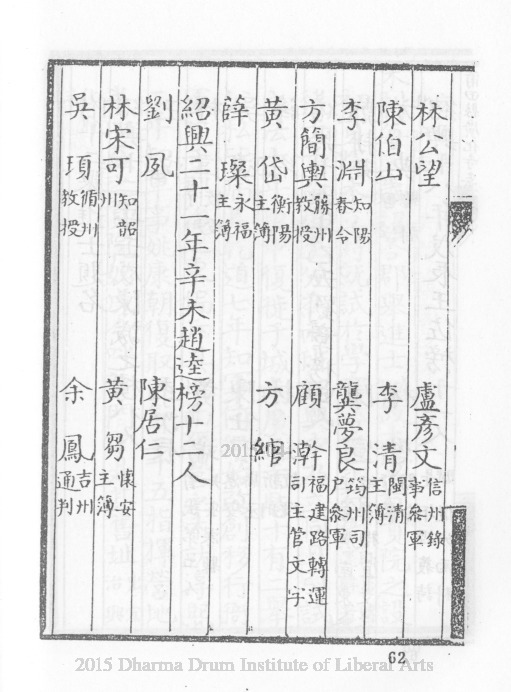 林公望 盧彥文信州錄事參軍
陳伯山 李清閩清主簿
李淵知陽春令 龔夢良筠州司戶參軍
方簡輿藤州教授 顧瀚福建路轉運司主管文字
黃岱衡陽主簿 方綰
薛璨永福主簿
紹興二十一年辛未趙逵榜十二人
劉夙 陳居仁
林宋可知韶州 黃芻懷安主簿
吳頊循州教授 余鳳吉州通判
62
2015 Dharma Drum Institute of Liberal Arts